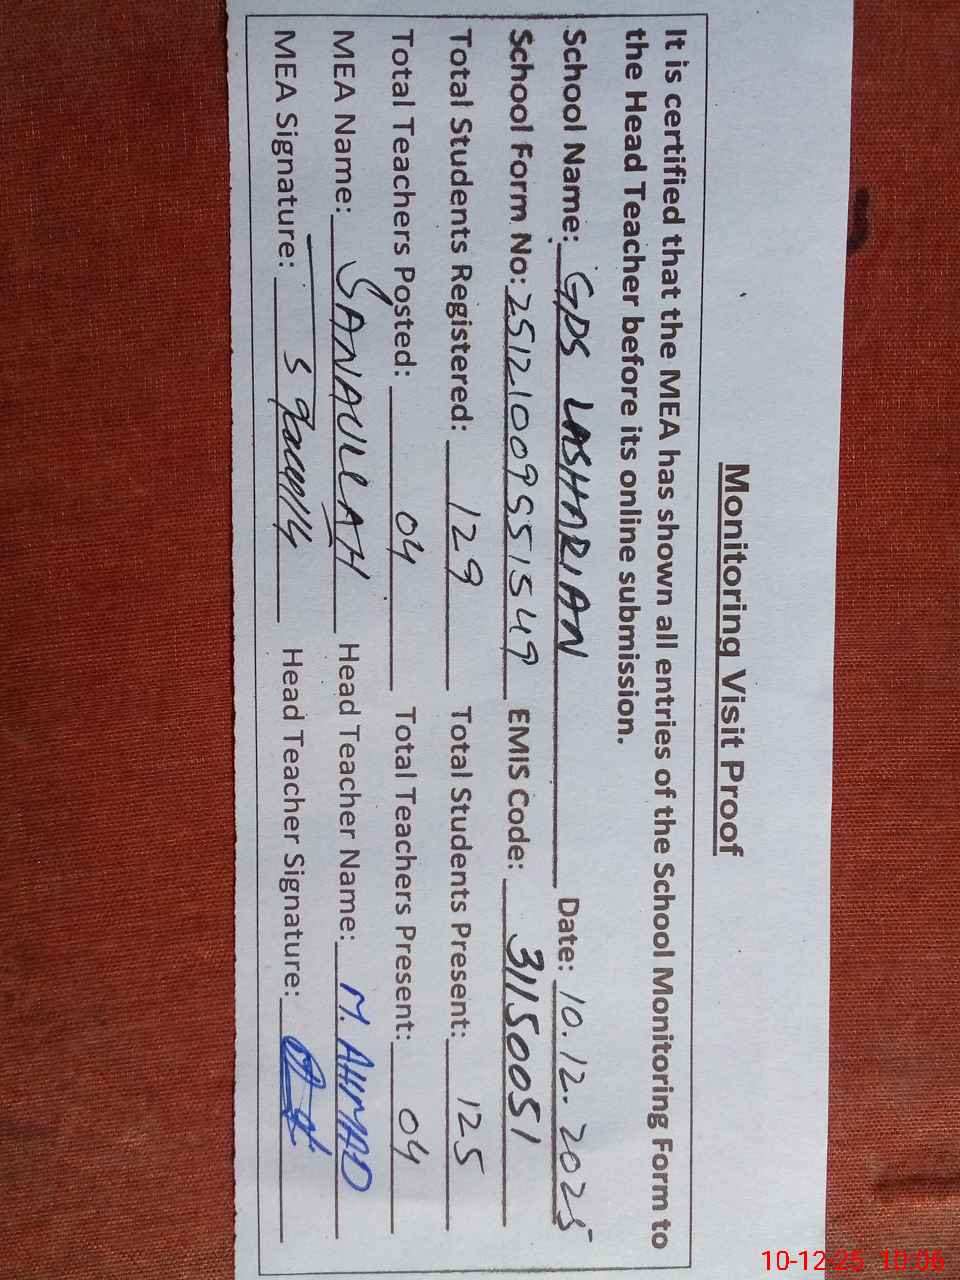 Monitoring Visit Proof
It is certified that the MEA has shown all entries of the School Monitoring Form to
the Head Teacher before its online submission.
School Name: GPS LASHARIAN Date: 10.12.2025
School Form No: 25121009551549 EMIS Code: 31150051
Total Students Registered: 129 Total Students Present: 125
Total Teachers Posted: 04 Total Teachers Present: 04
MEA Name: SANAULLAH Head Teacher Name: M. AHMAD
MEA Signature: Head Teacher Signature:
10-12-25 10:06